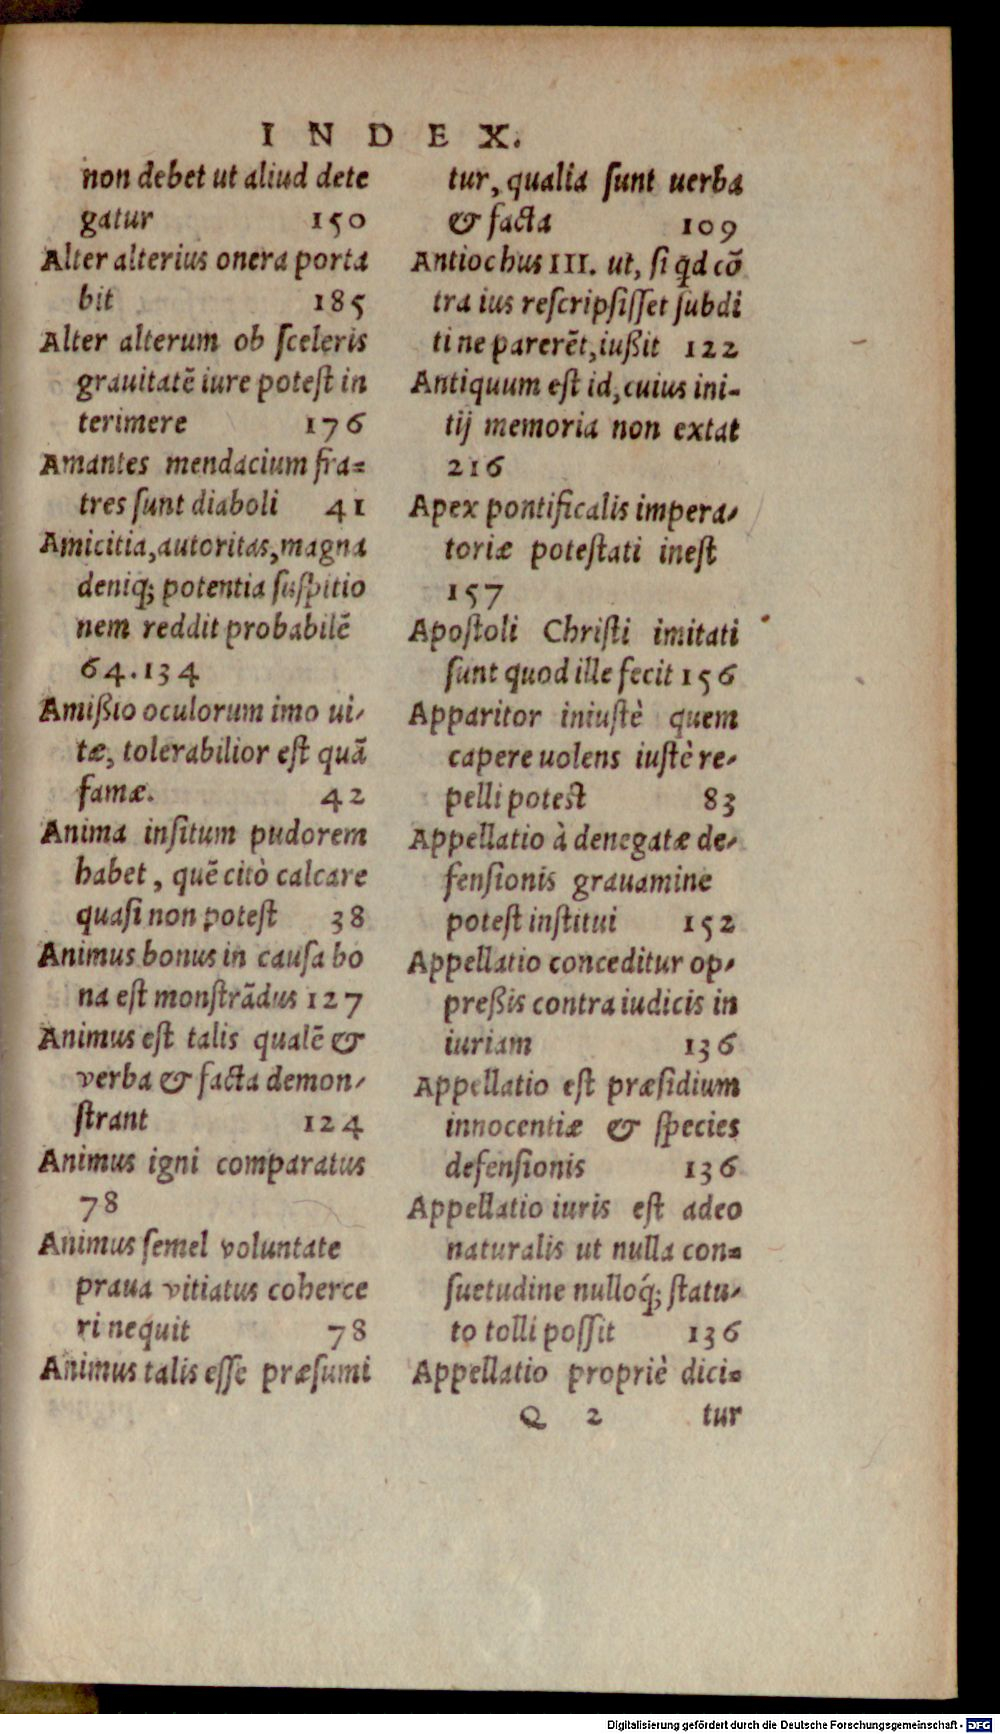 INDEX.
non debet ut aliud dete
gatur 150
Alter alterius onera porta
bit 185
Alter alterum ob ſceleris
grauitatē iure poteſt in
terimere 176
Amantes mendacium fra=
tres ſunt diaboli 41
Amicitia, autoritas, magna
deniq; potentia ſuſpitio
nem reddit probabilē
64.134
Amißio oculorum imo ui-
tæ, tolerabilior eſt quā
famæ. 42
Anima inſitum pudorem
habet, quē citò calcare
quaſi non poteſt 38
Animus bonus in cauſa bo
na eſt monſtrādus 127
Animus eſt talis qualē &
verba & facta demon-
ſtrant 124
Animus igni comparatus
78
Animus ſemel voluntate
praua vitiatus coherce
ri nequit 78
Animus talis eſſe præſumi
tur, qualia ſunt uerba
& facta 109
Antiochus III. ut, ſi qd cō
tra ius reſcripſiſſet ſubdi
ti ne parerēt, iußit 122
Antiquum eſt id, cuius ini-
tij memoria non extat
216
Apex pontificalis impera-
toriæ poteſtati ineſt
157
Apoſtoli Chriſti imitati
ſunt quod ille fecit 156
Apparitor iniuſtè quem
capere uolens iuſtè re-
pelli poteſt 83
Appellatio à denegatæ de-
fenſionis grauamine
poteſt inſtitui 152
Appellatio conceditur op-
preßis contra iudicis in
iuriam 136
Appellatio eſt præſidium
innocentiæ & ſpecies
defenſionis 136
Appellatio iuris eſt adeo
naturalis ut nulla con=
ſuetudine nulloq́; ſtatu-
to tolli poſſit 136
Appellatio propriè dici=
Q 2 tur
Digitalisierung gefördert durch die Deutsche Forschungsgemeinschaft - DFG